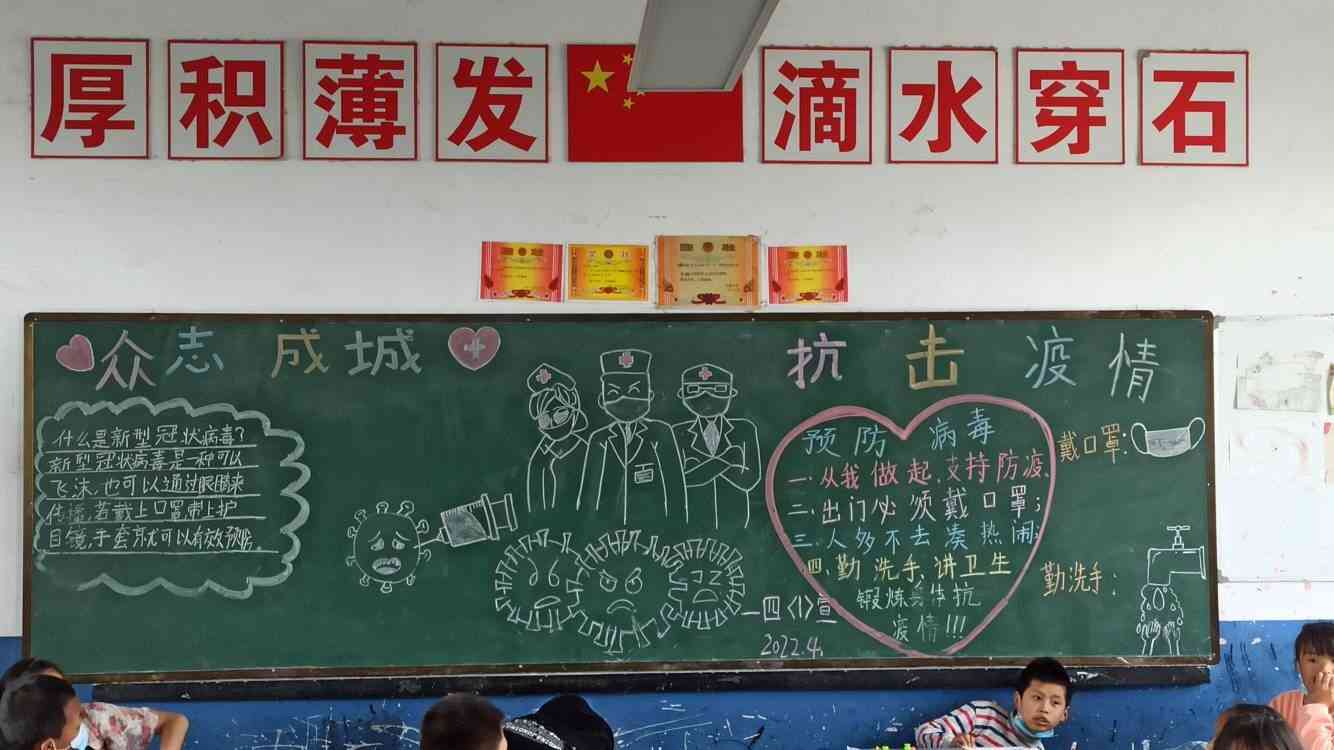 厚积薄发 滴水穿石
众志成城
抗击疫情
什么是新型冠状病毒?
新型冠状病毒是一种可以
飞沫,也可以通过眼睛来
传播,若戴上口罩带上护
目镜,手套就可以有效预防。
预防病毒
一.从我做起,支持防疫.
二.出门必须戴口罩;
三.人多不去凑热闹;
四.勤洗手,讲卫生
锻炼身体抗
疫情!!!
戴口罩:
勤洗手:
—四〈1〉宣
2022.4.